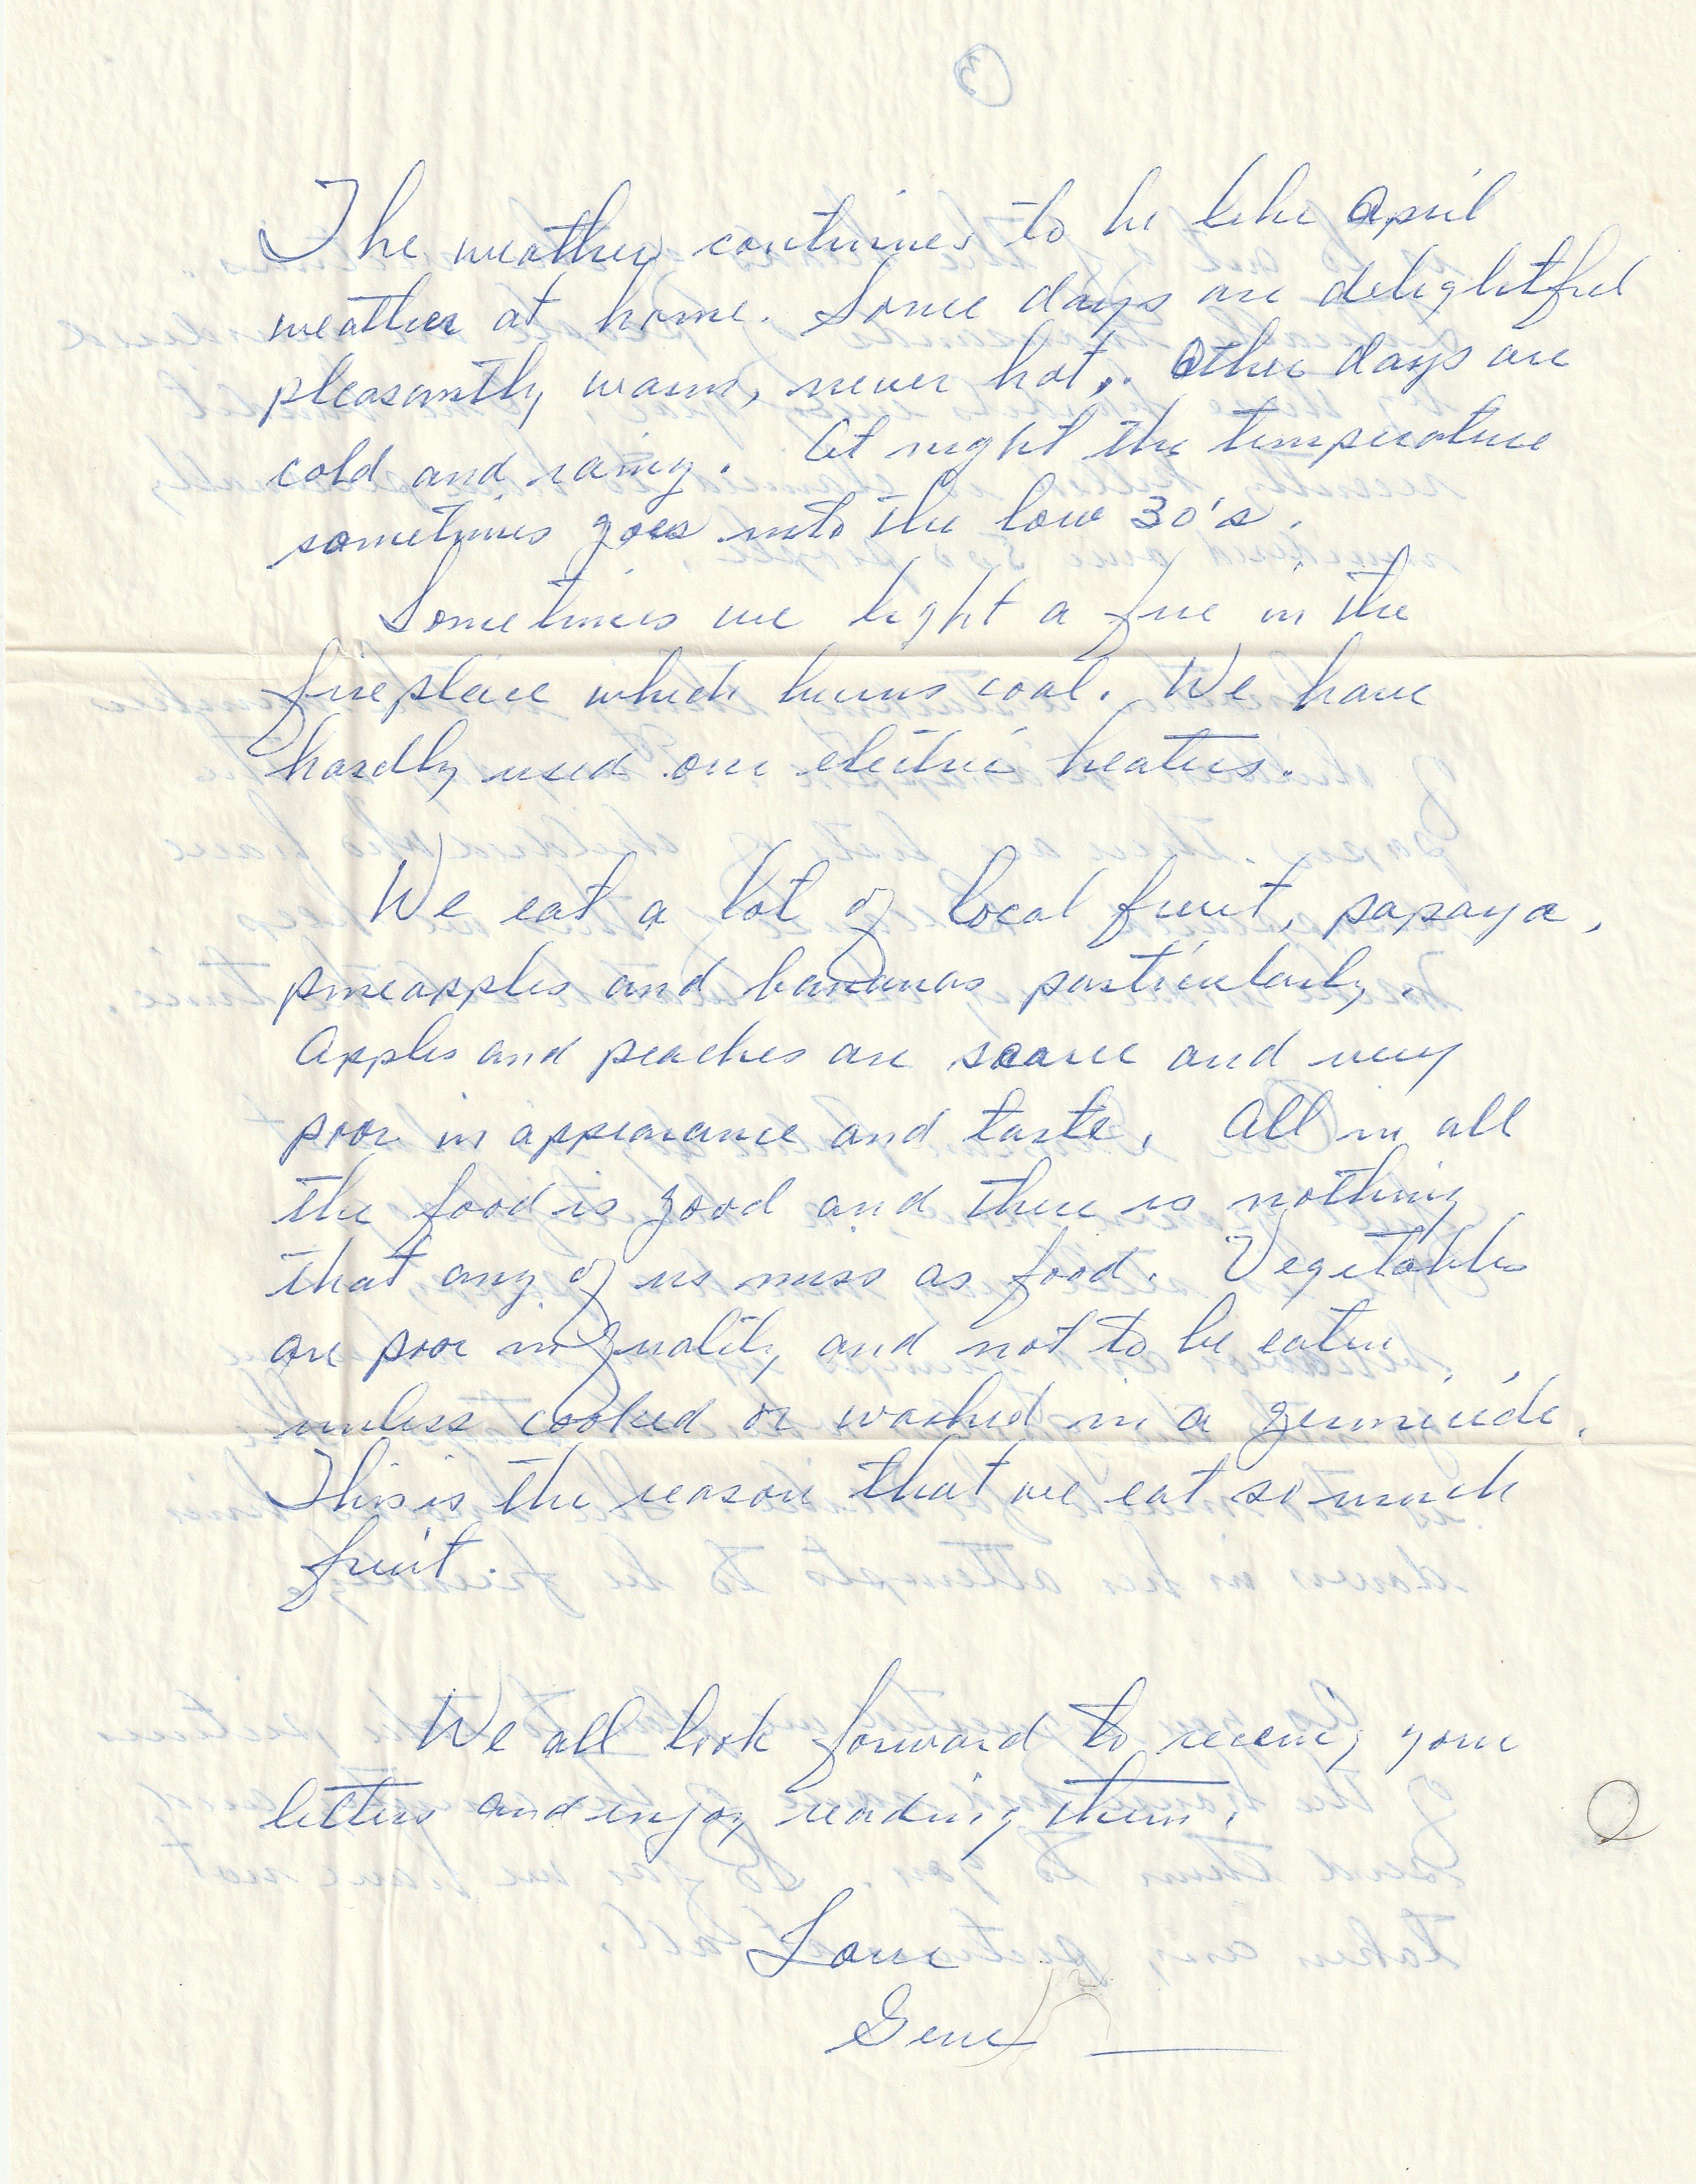 The weather continues to be like April
weather at home. Some days are delightful
pleasantly warm, never hot,. Other days are
cold and rainy. At night the temperature
sometimes goes into the low 30's.
Sometimes we light a fire in the
fireplace which burns coal. We have
hardly used our electric heaters.
We eat a lot of local fruit, papaya,
pineapples and bananas particularly.
Apples and peaches are scarce and very
poor in appearance and taste. All in all
the food is good and there is nothing
that any of us miss as food. Vegetables
are poor in quality and not to be eaten
unless cooked or washed in a germicide.
This is the reason that we eat so much
fruit.
We all look forward to receiving your
letters and enjoy reading them.
Love
Gene